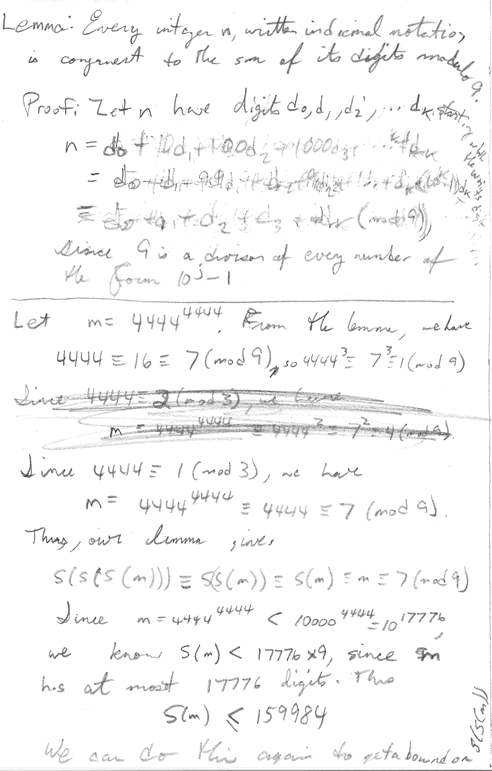 Lemma: Every integer n, written in decimal notation,
is congruent to the sum of its digits modulo 9.
Proof: Let n have digits d0, d1, d2, ... dk starting with the units digit
n = d0 + 10d1 + 100d2 + 1000d3
= d0 + d1 + 9d1
≡ d0 + d1 + d2 + d3 + dk (mod 9),
since 9 is a divisor of every number of
the form 10^j - 1
Let m = 4444^4444. From the lemma, we have
4444 ≡ 16 ≡ 7 (mod 9), so 4444^3 ≡ 7^3 ≡ 1 (mod 9)
Since 4444 ≡ 2 (mod 3), we have
m = 4444^4444 ≡ 4444^2 ≡ 7^2 ≡ 4 (mod 9)
Since 4444 ≡ 1 (mod 3), we have
m = 4444^4444 ≡ 4444 ≡ 7 (mod 9).
Thus, our lemma gives
S(S(S(m))) ≡ S(S(m)) ≡ S(m) ≡ m ≡ 7 (mod 9)
Since m = 4444^4444 < 10000^4444 = 10^17776,
we know S(m) < 17776x9, since m
has at most 17776 digits. Thus
S(m) ≤ 159984
We can do this again to get a bound on